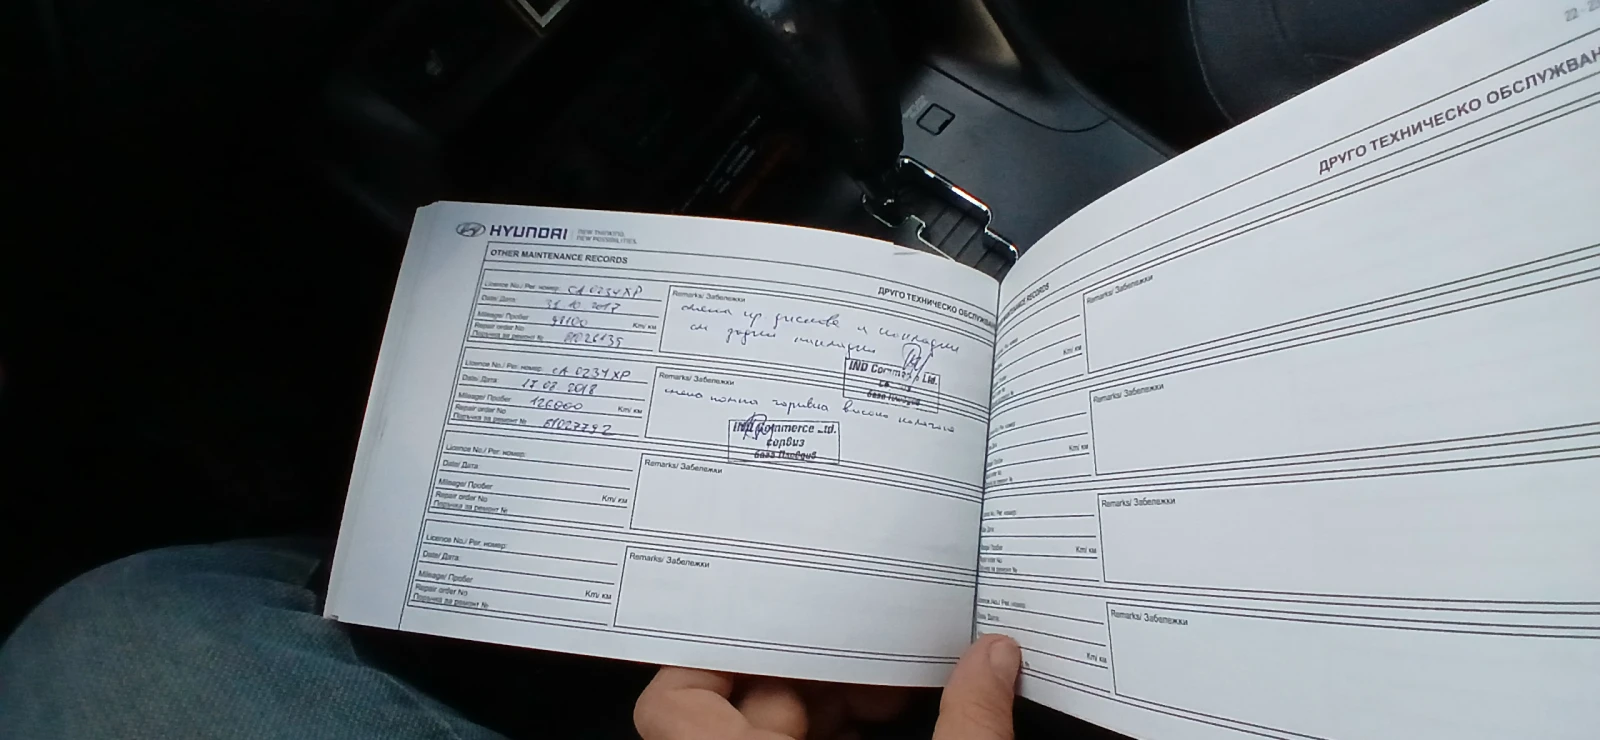 HYUNDAI
NEW THINKING.
NEW POSSIBILITIES.
OTHER MAINTENANCE RECORDS
ДРУГО ТЕХНИЧЕСКО ОБСЛУЖВАН
Licence No./ Рег. номер: СА 0234 ХР
Date/ Дата: 31.10 2017
Mileage/ Пробег Km/ км
Repair order No
Поръчка за ремонт №
Remarks/ Забележки
смяна пр дискове и накладки
см задни накладки
IND Commerce Ltd.
база Пловдив
Licence No./ Рег. номер: СА 0234 ХР
Date/ Дата: 17 02 2018
Mileage/ Пробег 126000 Km/ км
Repair order No
Поръчка за ремонт № 61027792
Remarks/ Забележки
смяна помпа горивна високо налягане
IND Commerce Ltd.
сервиз
база Пловдив
Licence No./ Рег. номер:
Date/ Дата:
Mileage/ Пробег Km/ км
Repair order No
Поръчка за ремонт №
Remarks/ Забележки
Licence No./ Рег. номер:
Date/ Дата:
Mileage/ Пробег Km/ км
Repair order No
Поръчка за ремонт №
Remarks/ Забележки
ДРУГО ТЕХНИЧЕСКО ОБСЛУЖВАН
RECORDS
Km/ км
Remarks/ Забележки
Km/ км
Remarks/ Забележки
Km/ км
Remarks/ Забележки
Km/ км
Remarks/ Забележки